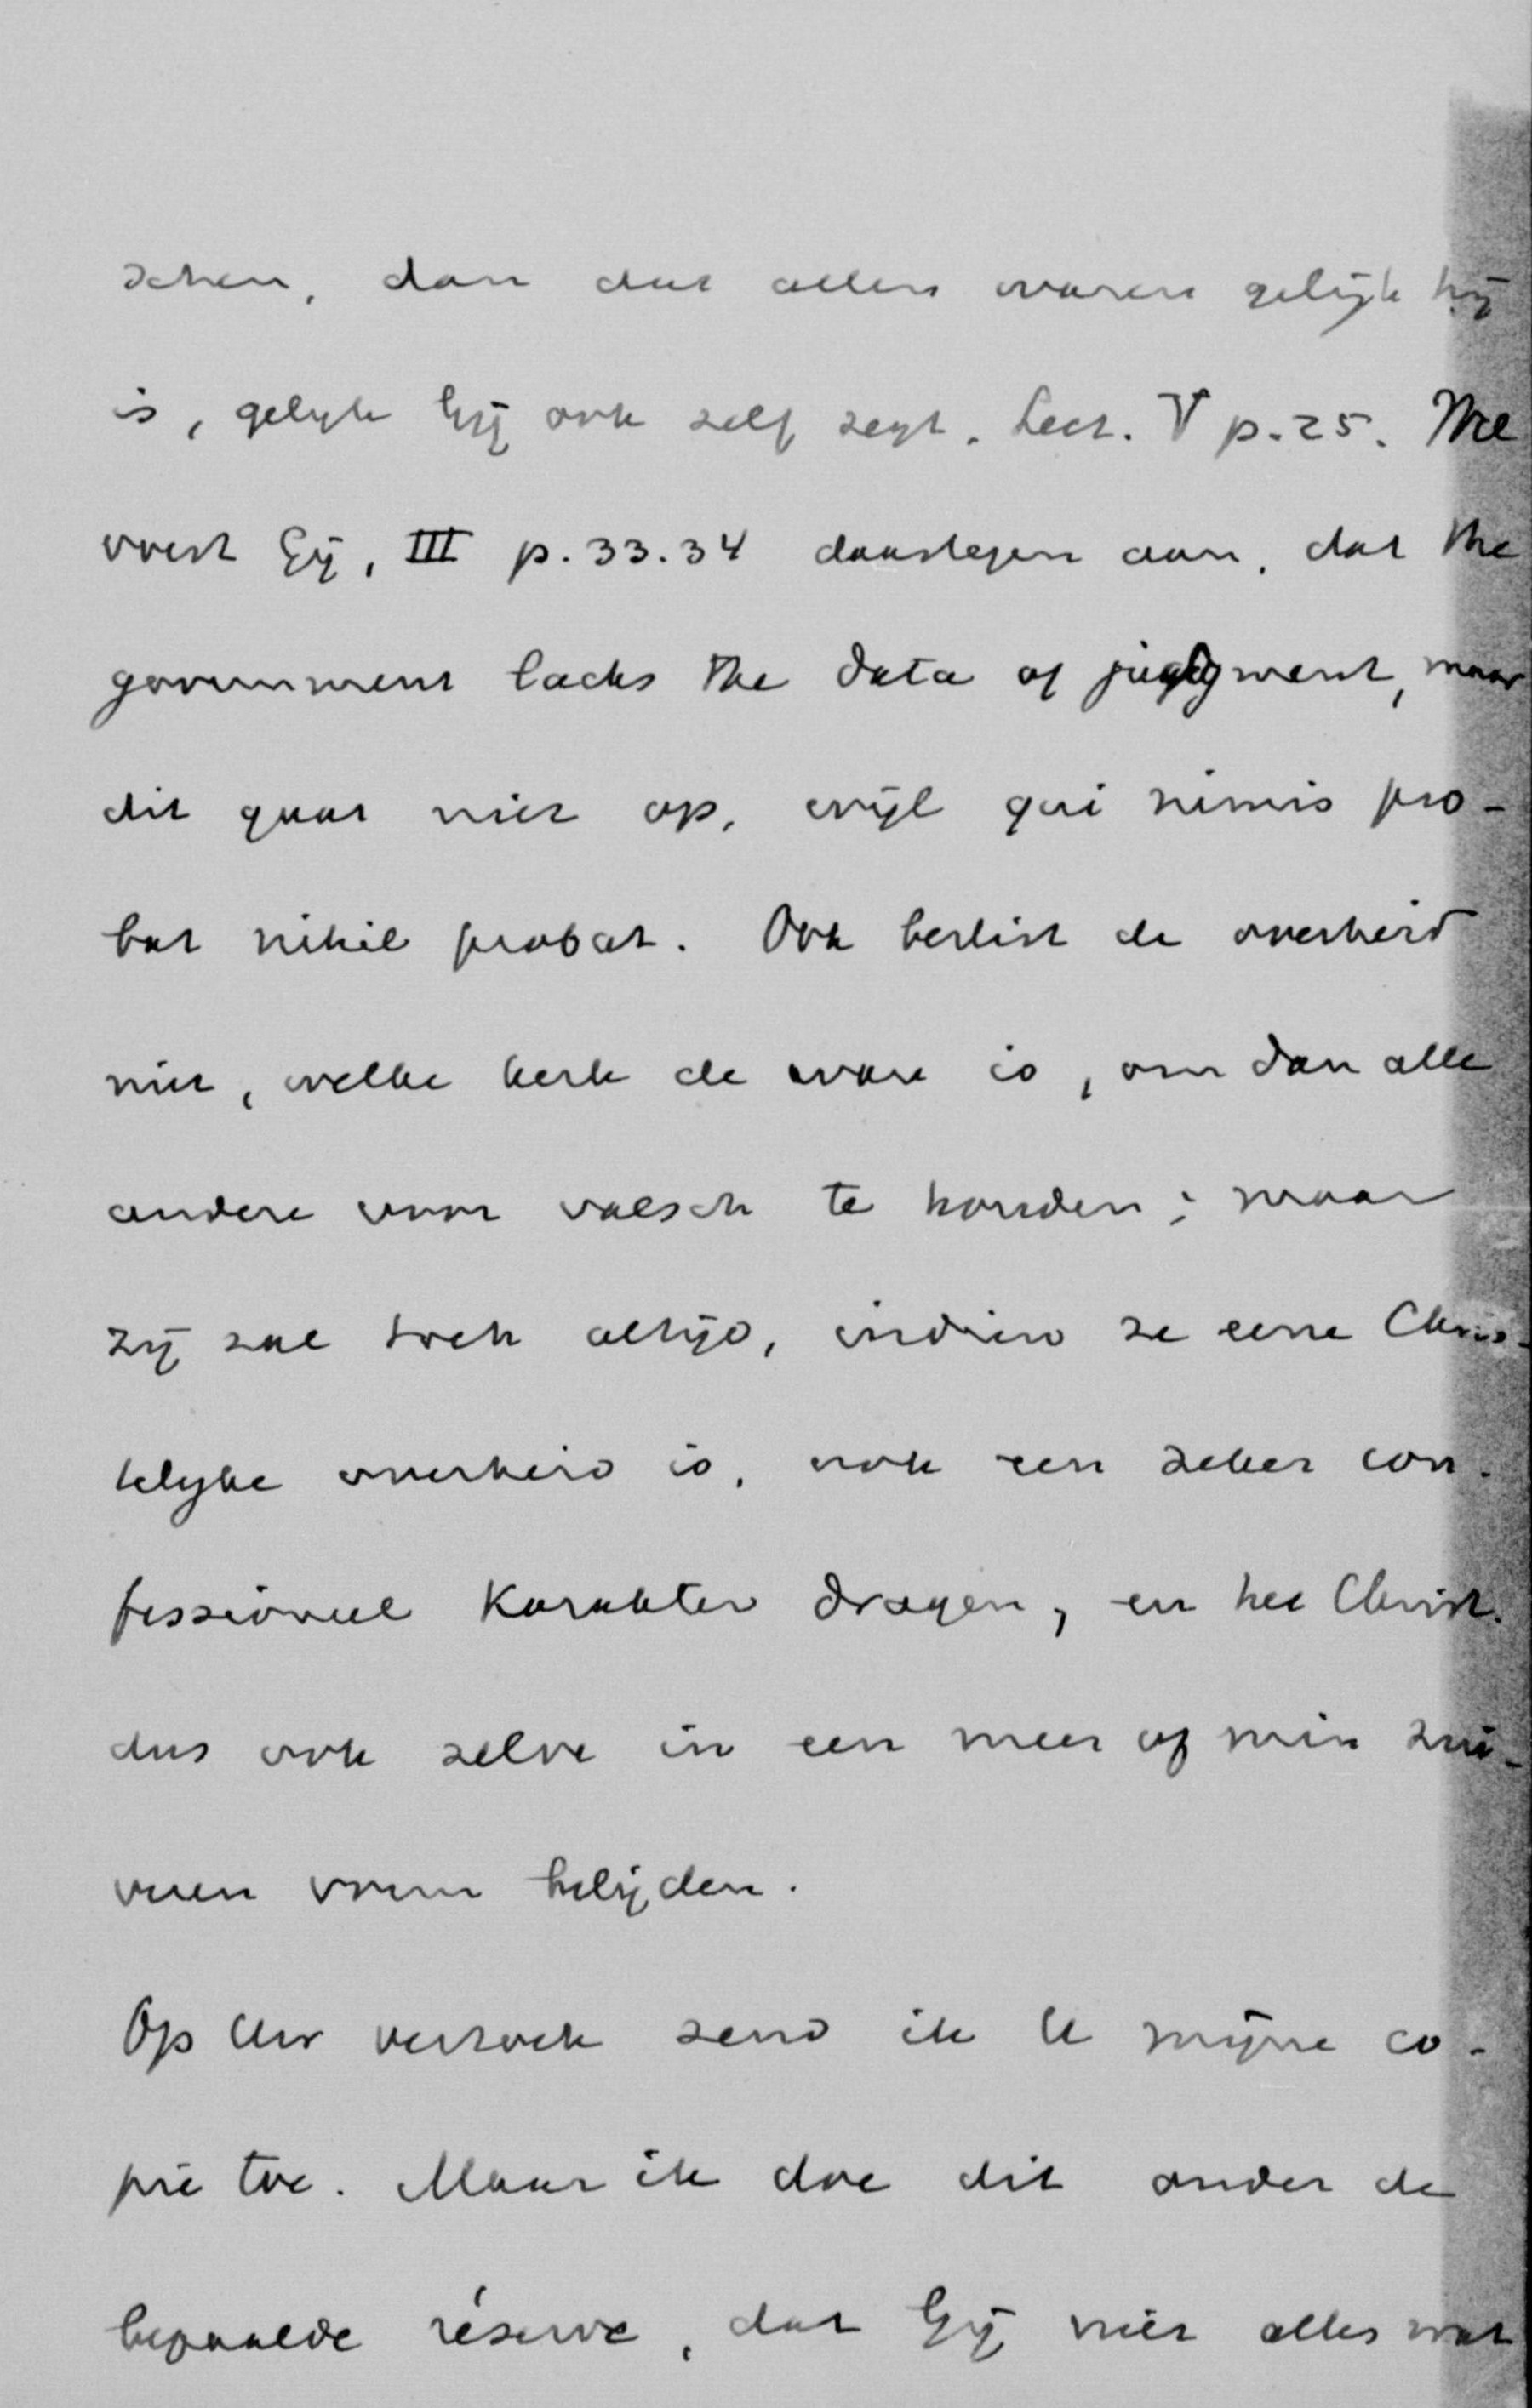 schen, dan dat allen waren gelijk hij
is, gelijk Gij ook zelf zegt. Lect. V p. 25. Wel
voert Gij, III p. 33. 34 daartegen aan, dat the
government lacks the data of judgment, maar
dit gaat niet op, wijl qui nimis pro-
bat nihil probat. Ook beslist de overheid
niet, welke kerk de ware is, om dan alle
andere voor valsch te houden; maar
zij zal toch altijd, indien ze eene Chris-
telijke overheid is, ook een zeker con-
fessioneel karakter dragen, en het Christ.
dus ook zelve in een meer of min zui-
veren vorm belijden.
Op Uw verzoek zend ik U mijne co-
pie toe. Maar ik doe dit onder de
bepaalde réserve, dat Gij niet alles wat